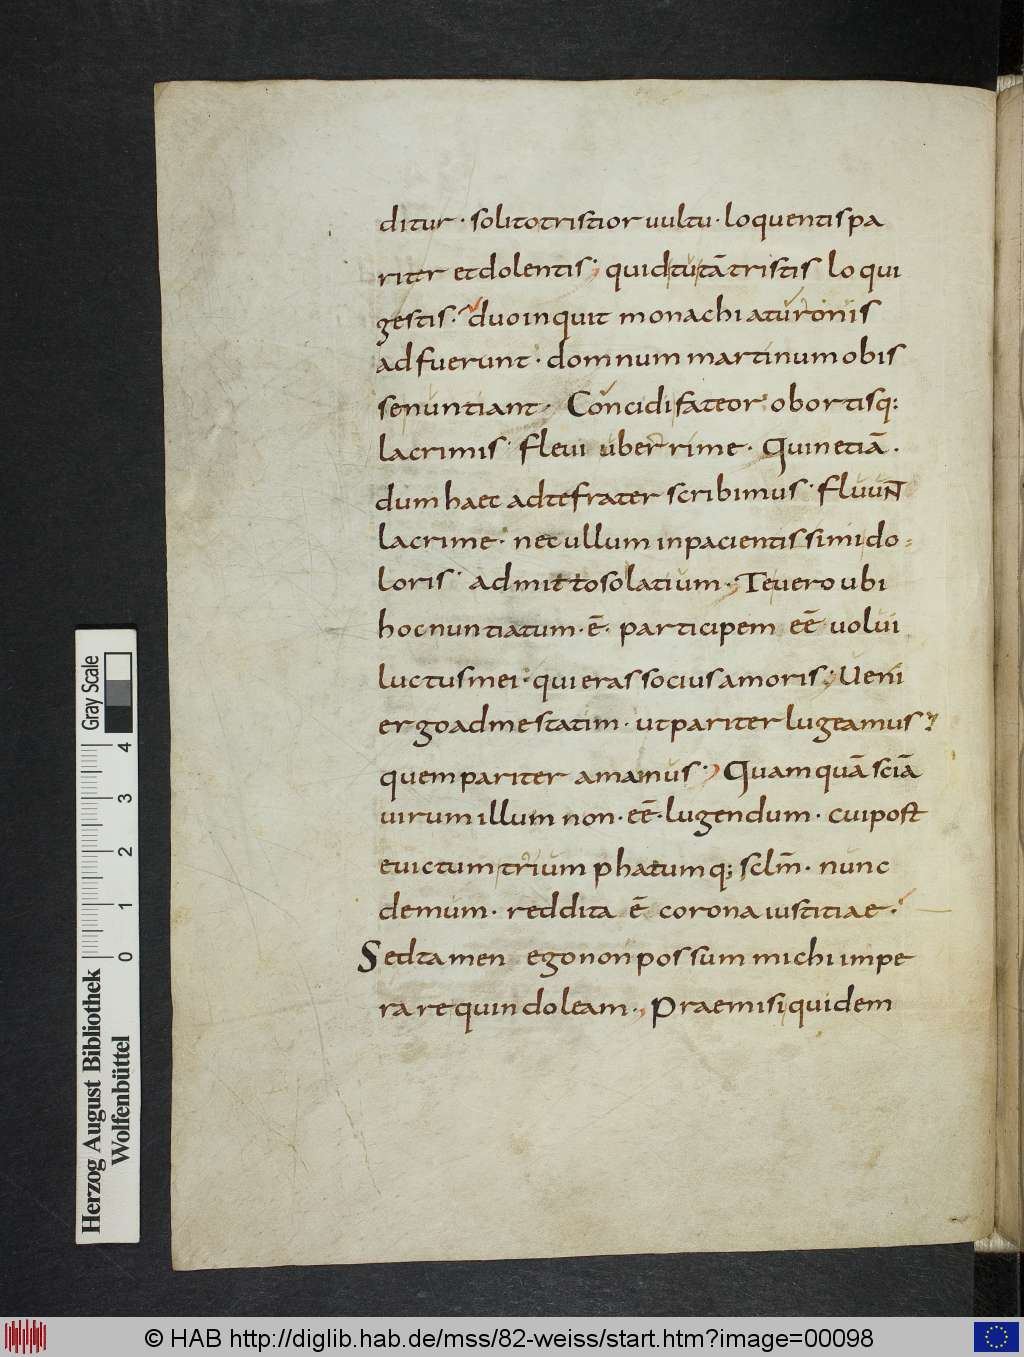 ditur · solitotristior uultu · loquentispa
riter etdolentis; quidtutātristis loqui
gestis · duoinquit monachi aturonis
adfuerunt · domnum martinum obis
senuntiant · Concidi fateor obortisq:
lacrimis · fleui uberrime · Quinetiā ·
dum haec adtefrater scribimus · fluunt
lacrime · nec ullum inpacientissimido-
loris · admittosolatium · Teuero ubi
hocnuntiatum · ē · participem eē uolui
luctusmei · quieras socius amoris; Ueni
ergoadmestatim · utpariter lugeamus;
quempariter amamus; Quamquā sciā
uirum illum non · eē · lugendum · cuipost
euictum trium phatumq; sclm̄ · nunc
demum · reddita ē corona iustitiae ·
Sedtamen egononpossum michi impe
rare quindoleam ·, Praemisi quidem
Gray Scale
4
3
2
1
0
Herzog August Bibliothek
Wolfenbüttel
© HAB http://diglib.hab.de/mss/82-weiss/start.htm?image=00098